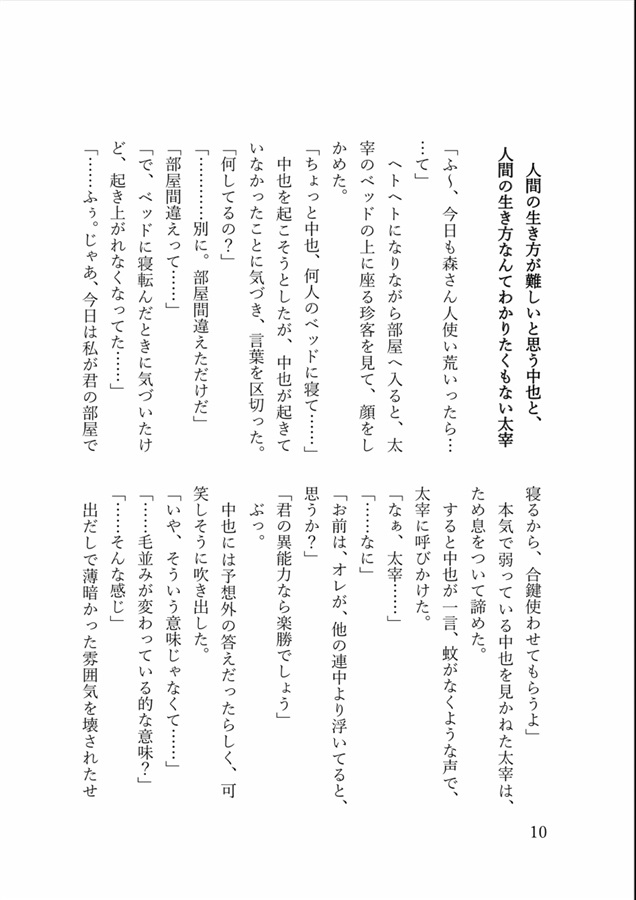 人間の生き方が難しいと思う中也と、
人間の生き方なんてわかりたくもない太宰
「ふ〜、今日も森さん人使い荒いったら…
…て」
ヘトヘトになりながら部屋へ入ると、太
宰のベッドの上に座る珍客を見て、顔をし
かめた。
「ちょっと中也、何人のベッドに寝て……」
中也を起こそうとしたが、中也が起きて
いなかったことに気づき、言葉を区切った。
「何してるの？」
「…………別に。部屋間違えただけだ」
「部屋間違えって……」
「で、ベッドに寝転んだときに気づいたけ
ど、起き上がれなくなってた……」
「……ふぅ。じゃあ、今日は私が君の部屋で
寝るから、合鍵使わせてもらうよ」
本気で弱っている中也を見かねた太宰は、
ため息をついて諦めた。
すると中也が一言、蚊がなくような声で、
太宰に呼びかけた。
「なぁ、太宰……」
「……なに」
「お前は、オレが、他の連中より浮いてると、
思うか？」
「君の異能力なら楽勝でしょう」
ぶっ。
中也には予想外の答えだったらしく、可
笑しそうに吹き出した。
「いや、そういう意味じゃなくて……」
「……毛並みが変わっている的な意味？」
「……そんな感じ」
出だしで薄暗かった雰囲気を壊されたせ
10